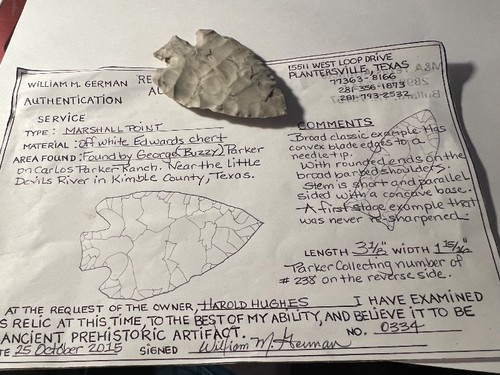 WILLIAM M. GERMAN "RE
AUTHENTICATION AU
SERVICE
TYPE: MARSHALL POINT
MATERIAL: Off white Edwards chert
AREA FOUND: Found by George (Buzzy) Parker
on Carlos Parker Ranch. Near the Little
Devils River in Kimble County, Texas.
15511 WEST LOOP DRIVE
PLANTERSVILLE, TEXAS
77363-8166
281-356-1873
281-793-2532
COMMENTS
Broad classic example has
convex blade edges to a
needle tip.
With rounded ends on the
broad barbed shoulders.
Stem is short and parallel
sided with a concave base.
A first stage example that
was never re-sharpened.
LENGTH WIDTH 1 15/16"
Parker Collecting number of
# 238 on the reverse side.
AT THE REQUEST OF THE OWNER, HAROLD HUGHES I HAVE EXAMINED
S RELIC AT THIS TIME, TO THE BEST OF MY ABILITY, AND BELIEVE IT TO BE
ANCIENT PREHISTORIC ARTIFACT. NO. 0334
TE 25 October 2015 SIGNED William M. German